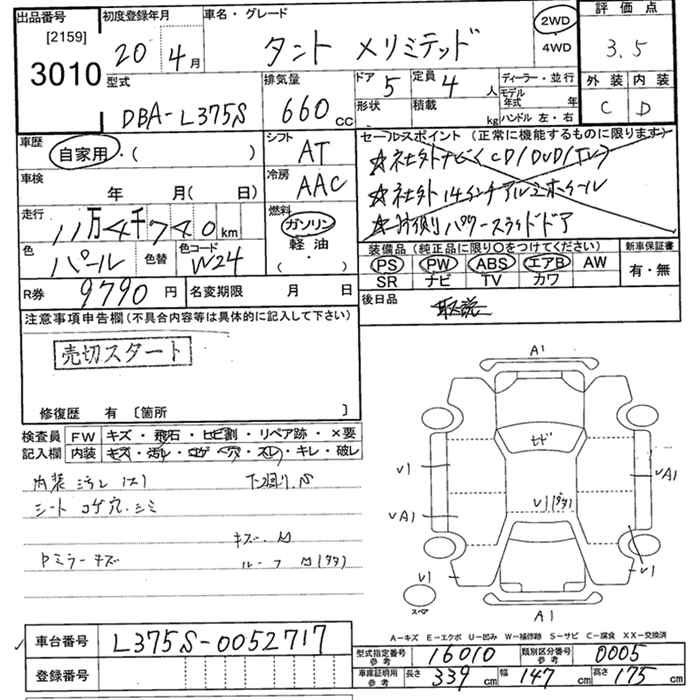 出品番号 初度登録年月 車名・グレード 評価点
[2159] 3010 20 4月 タント メリミテッド 2WD 4WD 3.5
型式 DBA-L375S 排気量 660 cc ドア 5 定員 4 人 ディーラー・並行 外装 内装
形状 積載 kg モデル年式 年 ハンドル 左・右 C D
車歴 自家用・( ) シフト AT セールスポイント (正常に機能するものに限ります)
☆社外ナビ CD/DVD/TV
車検 年 月( 日) 冷房 AAC ☆社外14インチアルミホイール
走行 11万4千740km 燃料 ガソリン 軽油 ( ・ ) パワースライドドア
色 パール 色替 色コード W24 装備品 (純正品に限り○をつけてください) 新車保証書
PS PW ABS エアB AW 有・無
SR ナビ TV カワ
R券 9790円 名変期限 月 日 後日品 取説
注意事項申告欄(不具合内容等は具体的に記入して下さい)
売切スタート
修復歴 有 〔箇所 〕
検査員 FW キズ・飛石・ヒビ割・リペア跡・×要
記入欄 内装 キズ・汚レ・コゲ穴・スレ・キレ・破レ
内装 汚レ 下廻り
シート コゲ穴.シミ
キズ.
ミラーキズ ルーフ
A1
ヒビ
V1
VA1
VA1
V1
V1
V1
スペア
A1
A-キズ E-エクボ U-凹み W-補修跡 S-サビ C-腐食 XX-交換済
車台番号 L375S-0052717
登録番号
型式指定番号 参考 16010 類別区分番号 参考 0005
車庫証明用 参考 長さ 339 cm 幅 147 cm 高さ 175 cm